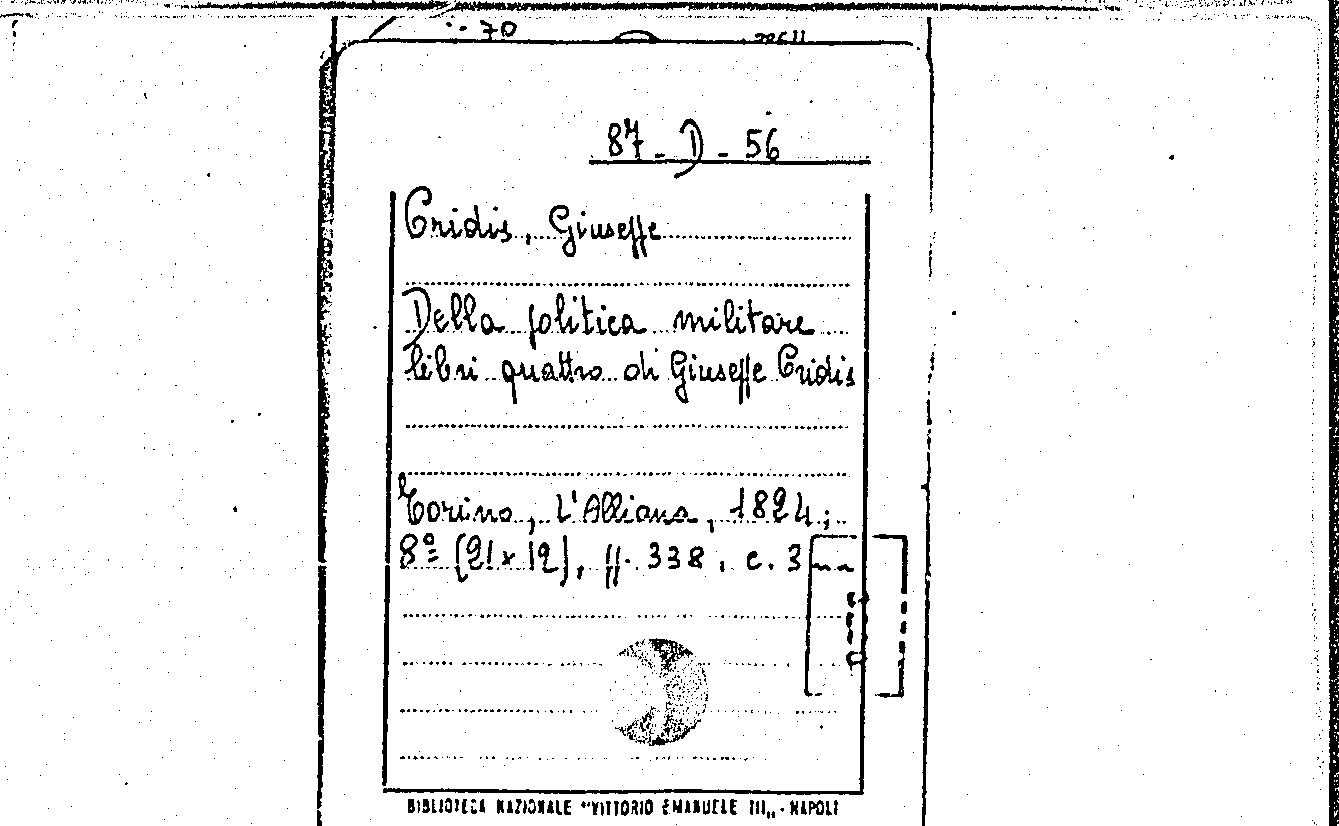 70
87-D-56
Cridis, Giuseppe
Della politica militare
libri quattro di Giuseppe Cridis
Torino, L'Alliana, 1824;
8º (21x12), pp. 338, c. 3
BIBLIOTECA NAZIONALE "VITTORIO EMANUELE III„ - NAPOLI